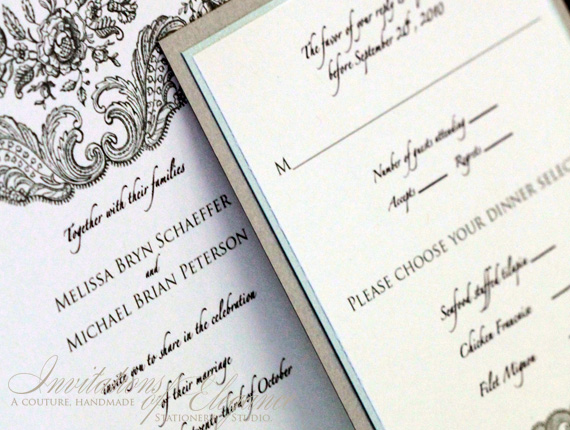 Together with their families
MELISSA BRYN SCHAEFFER
and
MICHAEL BRIAN PETERSON
invite you to share in the celebration
of their marriage
twenty third of October
The favor of your reply is
before September 20th, 2010
M
Number of guests attending
Accepts Regrets
PLEASE CHOOSE YOUR DINNER SELEC
Seafood stuffed tilapia
Chicken Francaise
Filet Mignon
Invitations of Elegance
A COUTURE, HANDMADE STATIONERY STUDIO.